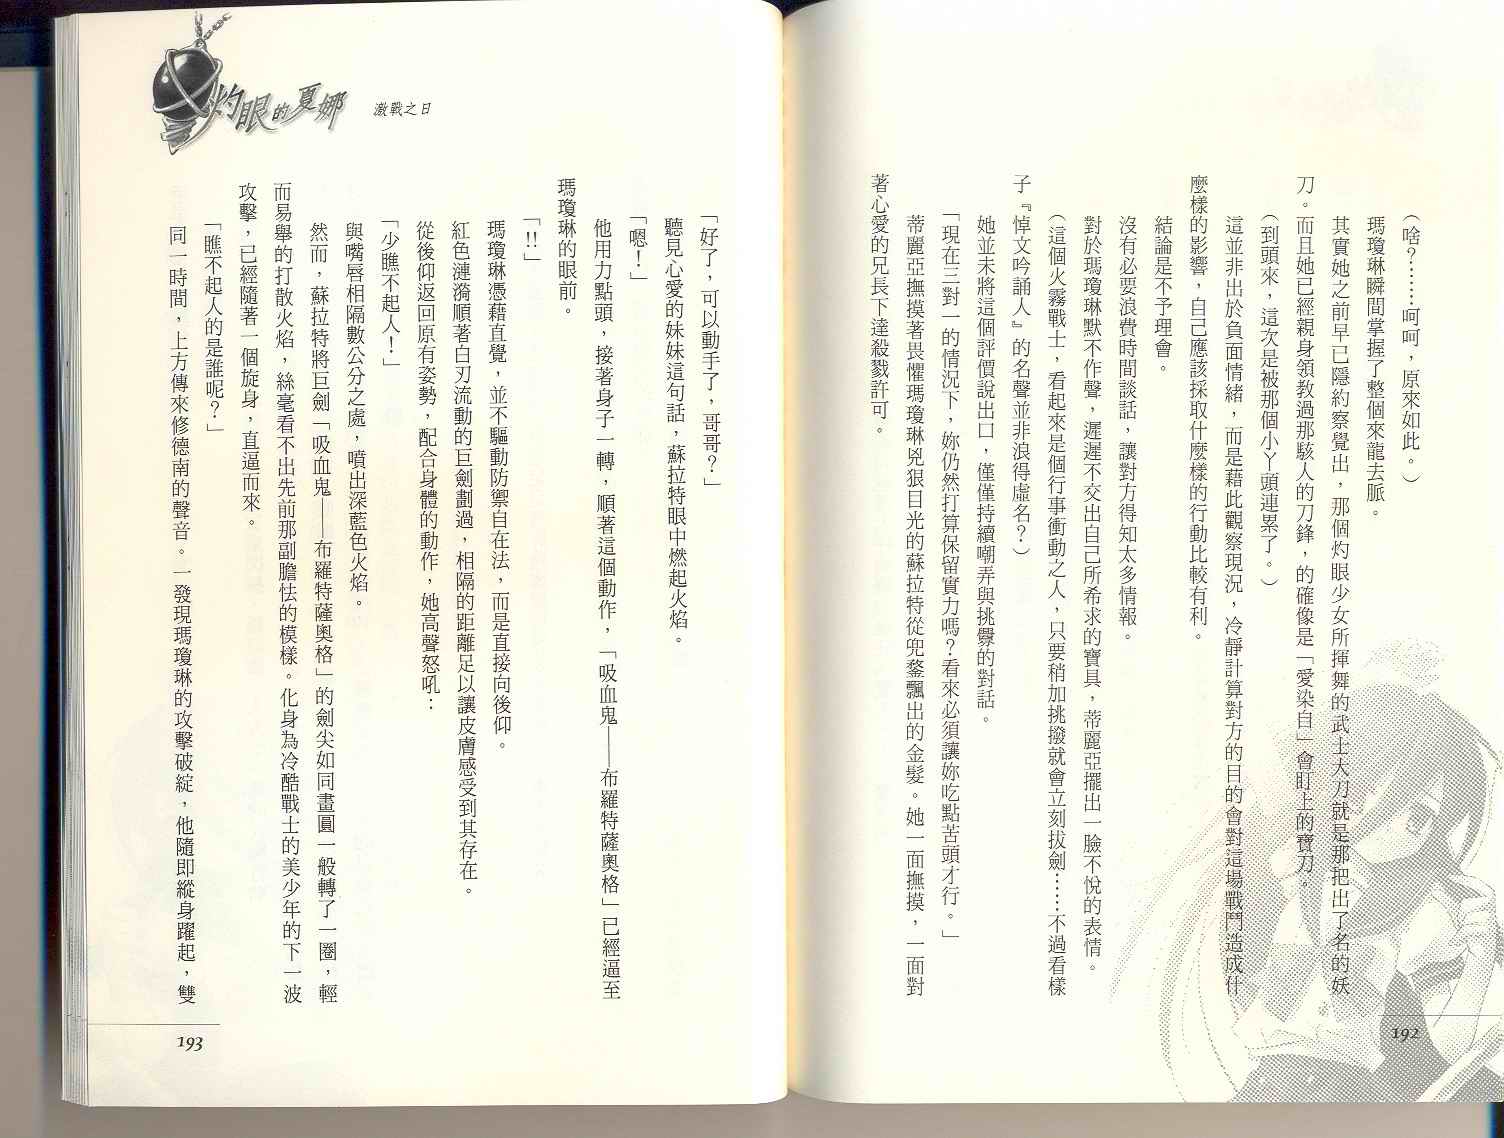 (啥?……呵呵,原來如此。)
瑪瓊琳瞬間掌握了整個來龍去脈。
其實她之前早已隱約察覺出,那個灼眼少女所揮舞的武士大刀就是那把出了名的妖
刀。而且她已經親身領教過那駭人的刀鋒,的確像是「愛染自」會盯上的寶刀。
(到頭來,這次是被那個小丫頭連累了。)
這並非出於負面情緒,而是藉此觀察現況,冷靜計算對方的目的會對這場戰鬥造成什
麼樣的影響,自己應該採取什麼樣的行動比較有利。
結論是不予理會。
沒有必要浪費時間談話,讓對方得知太多情報。
對於瑪瓊琳默不作聲,遲遲不交出自己所希求的寶具,蒂麗亞擺出一臉不悅的表情。
(這個火霧戰士,看起來是個行事衝動之人,只要稍加挑撥就會立刻拔劍……不過看樣
子『悼文吟誦人』的名聲並非浪得虛名?)
她並未將這個評價說出口,僅僅持續嘲弄與挑釁的對話。
「現在三對一的情況下,妳仍然打算保留實力嗎?看來必須讓妳吃點苦頭才行。」
蒂麗亞撫摸著畏懼瑪瓊琳兇狠目光的蘇拉特從兜鍪飄出的金髮。她一面撫摸,一面對
著心愛的兄長下達殺戮許可。
192
灼眼的夏娜
激戰之日
「好了,可以動手了,哥哥?」
聽見心愛的妹妹這句話,蘇拉特眼中燃起火焰。
「嗯!」
他用力點頭,接著身子一轉,順著這個動作,「吸血鬼——布羅特薩奧格」已經逼至
瑪瓊琳的眼前。
「!!」
瑪瓊琳憑藉直覺,並不驅動防禦自在法,而是直接向後仰。
紅色漣漪順著白刃流動的巨劍劃過,相隔的距離足以讓皮膚感受到其存在。
從後仰返回原有姿勢,配合身體的動作,她高聲怒吼:
「少瞧不起人!」
與嘴唇相隔數公分之處,噴出深藍色火焰。
然而,蘇拉特將巨劍「吸血鬼——布羅特薩奧格」的劍尖如同畫圓一般轉了一圈,輕
而易舉的打散火焰,絲毫看不出先前那副膽怯的模樣。化身為冷酷戰士的美少年的下一波
攻擊,已經隨著一個旋身,直逼而來。
「瞧不起人的是誰呢?」
同一時間,上方傳來修德南的聲音。一發現瑪瓊琳的攻擊破綻,他隨即縱身躍起,雙
193